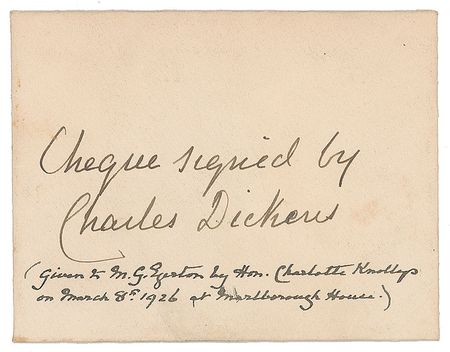 Cheque signed by
Charles Dickens
(Given to M. G. Egerton by Hon. Charlotte Knollys
on March 8th 1926 at Marlborough House.)